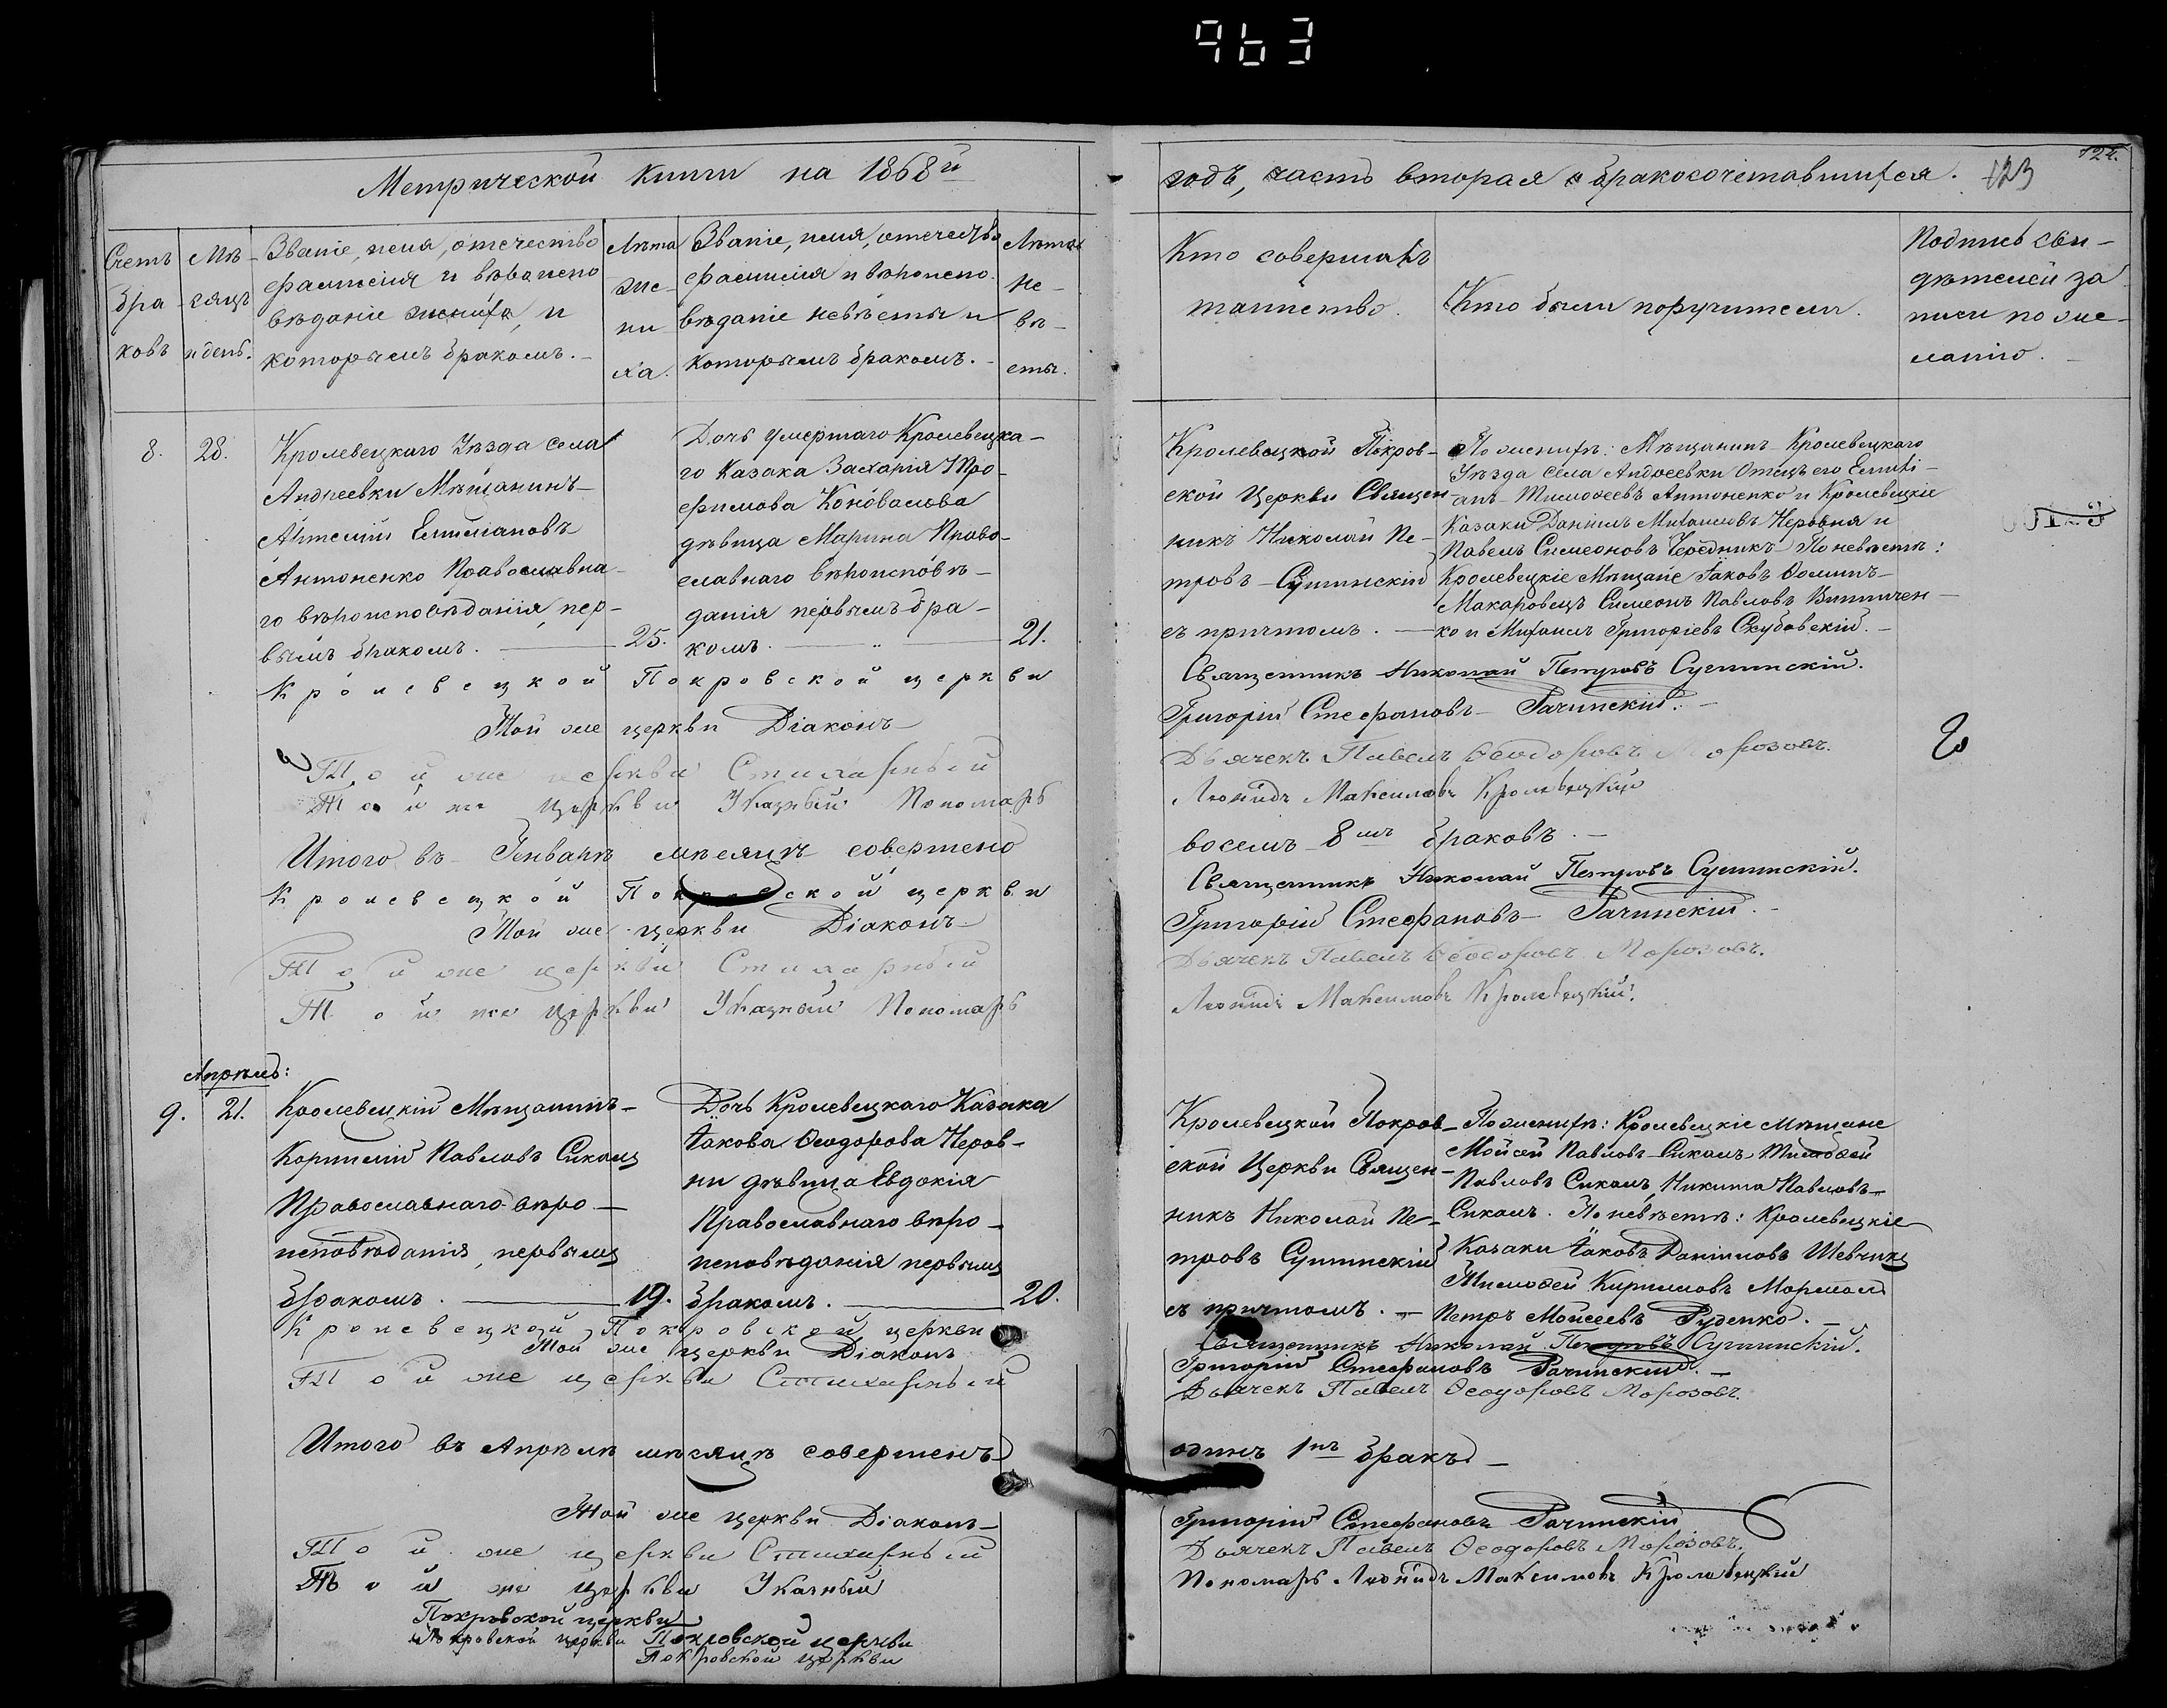 963
Метрической книги на 1868й
годъ, часть вторая о бракосочетавшихся.
123
124.
Счетъ браковъ
Мѣсяцъ и день.
Званіе, имя, отчество
фамилія и вѣроиспо
вѣданіе жениха, и
которымъ бракомъ.
Лѣта жениха.
Званіе, имя, отчество
фамилія и вѣроиспо
вѣданіе невѣсты и
которымъ бракомъ.
Лѣта невѣсты.
Кто совершалъ
таинство.
Кто были поручители.
Подпись сви-
дѣтелей за
писи по же-
ланію.
8.
28.
Кролевецкаго Уѣзда села
Андреевки Мѣщанинъ
Емиліановъ
Антоненко Православна-
го вѣроисповѣданія, пер-
вымъ бракомъ.
25.
Дочь умершаго Кролевецка-
го Казака Захарія Тро-
фимова Коновалова
дѣвица Марина Право-
славнаго вѣроисповѣ-
данія первымъ бра-
комъ.
21.
Кролевецкой Покров-
ской Церкви Священ-
никъ Николай Пе-
тровъ
съ причтомъ.
По женихѣ: Мѣщанинъ Кролевецкаго
Уѣзда села Андреевки Отецъ его Емилі-
анъ Тимоѳеевъ Антоненко и Кролевецкіе
Казаки Даніилъ Михаиловъ Неровня и
Павелъ Симеоновъ Чередникъ По невѣстѣ:
Кролевецкіе Мѣщане Іаковъ Ѳоминъ
Макаровецъ Симеонъ Павловъ
ко и Михаилъ Григоріевъ Скубовскій.
Кролевецкой Покровской церкви
Священникъ Николай Петровъ
Той же церкви Діаконъ
Григорій Стефановъ Рачинскій.
Той же церкви Стихарный
Дьячекъ Павелъ Ѳеодоровъ Морозовъ.
Той же церкви Указный Пономарь
Леонидъ Максимовъ Кролевецкій
Итого въ Генварѣ мѣсяцѣ совершено
восемь 8мь браковъ.
Кролевецкой Покровской церкви
Священникъ Николай Петровъ
Той же церкви Діаконъ
Григорій Стефановъ Рачинскій.
Той же церкви Стихарный
Дьячекъ Павелъ Ѳеодоровъ Морозовъ.
Той же церкви Указный Пономарь
Леонидъ Максимовъ Кролевецкій.
Апрѣль:
9.
21.
Кролевецкій Мѣщанинъ
Корнилій Павловъ Сикалъ
Православнаго вѣро
исповѣданія, первымъ
бракомъ.
19.
Дочь Кролевецкаго Казака
Іакова Ѳеодорова Неров-
ни дѣвица Евдокія
Православнаго вѣро-
исповѣданія первымъ
бракомъ.
20.
Кролевецкой Покров-
ской Церкви Священ-
никъ Николай Пе-
тровъ
съ причтомъ.
По женихѣ: Кролевецкіе мѣщане
Мойсей Павловъ Сикалъ Тимоѳей
Павловъ Сикалъ, Никита Павловъ
Сикалъ. По невѣстѣ: Кролевецкіе
Казаки Іаковъ Даніиловъ Шевчикъ
Тимоѳей Кирилловъ
Петръ Моисеевъ Руденко.
Кролевецкой Покровской церкви
Священникъ Николай Петровъ
Той же церкви Діаконъ
Григорій Стефановъ Рачинскій.
Той же церкви Стихарный
Дьячекъ Павелъ Ѳеодоровъ Морозовъ.
Итого въ Апрѣлѣ мѣсяцѣ совершенъ
одинъ 1нъ бракъ
Той же церкви Діаконъ
Григорій Стефановъ Рачинскій
Той же церкви Стихарный
Дьячекъ Павелъ Ѳеодоровъ Морозовъ.
Той же церкви Указный
Пономарь Леонидъ Максимовъ Кролевецкій
Покровской церкви
Покровской церкви Покровской церкви
Покровской церкви